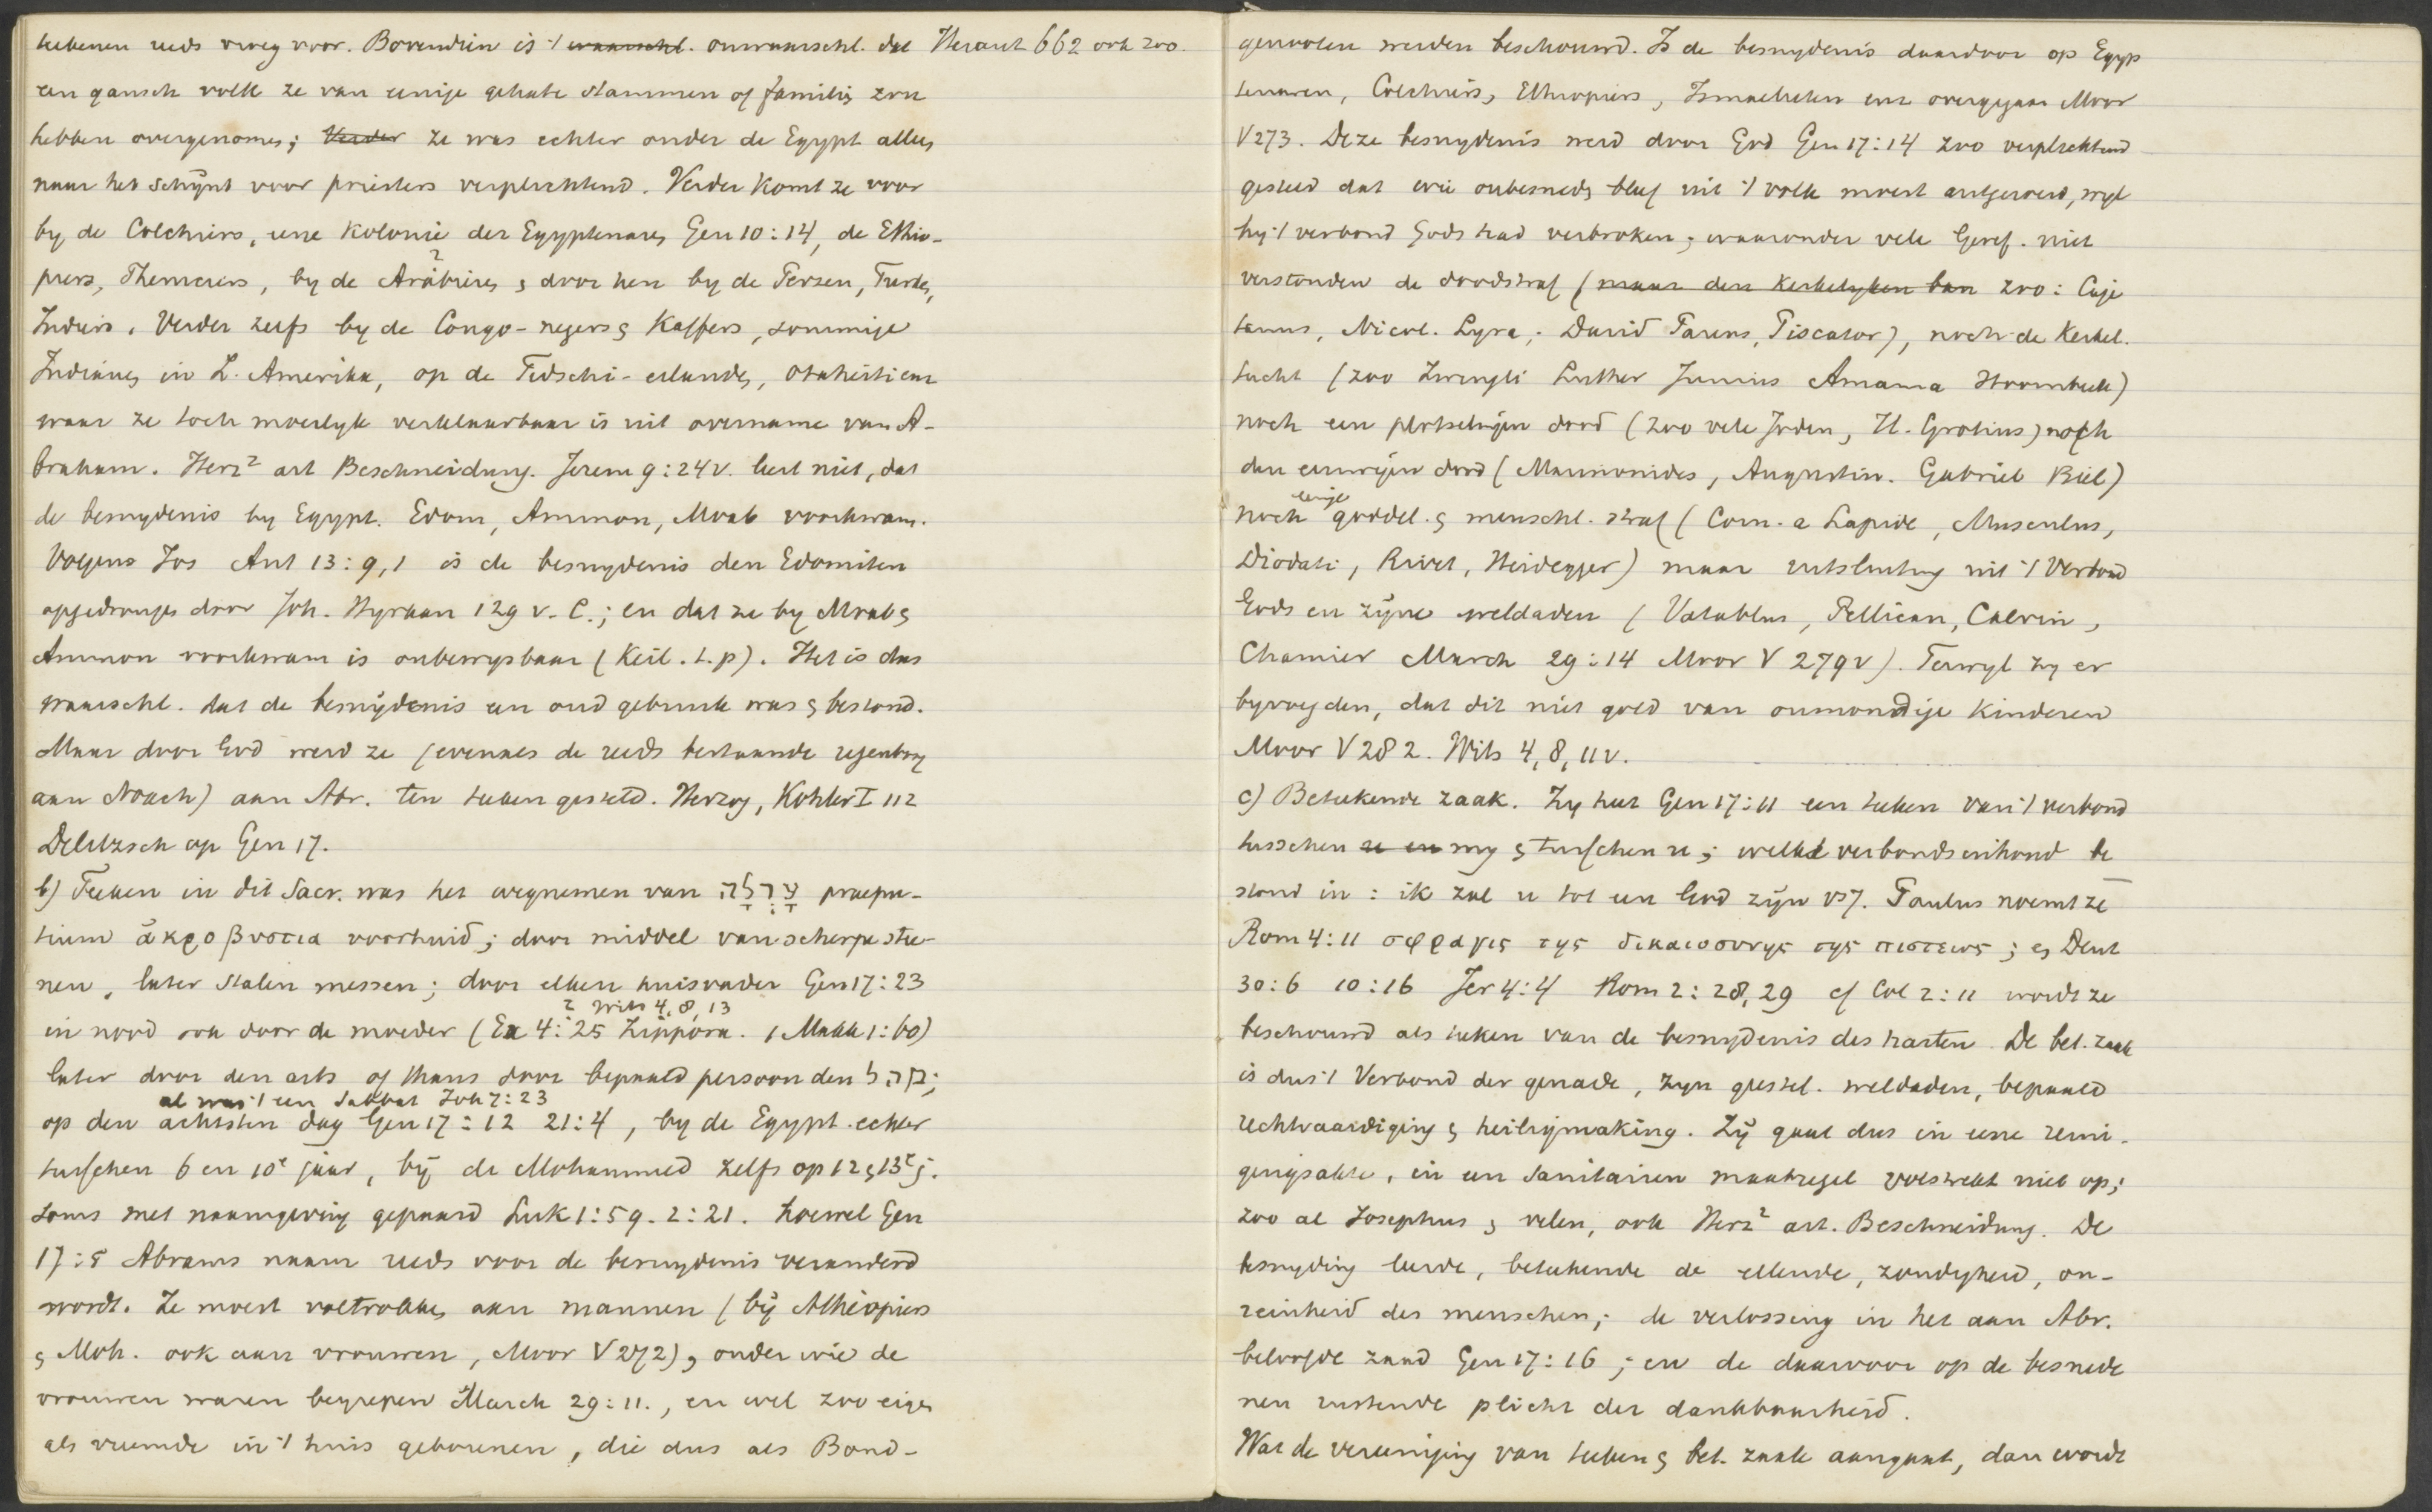 teekenen reeds vroeg voor. Bovendien is 't waarschl. onwaarschl. dat Heraut 662 ook zoo.
een gansch volk ze van eenige gehate stammen of familiën zou
hebben overgenomen; Verder ze was echter onder de Egypt. alleen
naar het schijnt voor priesters verplichtend. Verder komt ze voor
by de Colchiers, eene kolonie der Egyptenaren Gen 10:14, de Ethio-
piers, Themeiers, by de Arabieren & door hen by de Perzen, Turken,
Indiers. Verder zelfs by de Congo-negers & Kaffers, sommige
Indianen in Z. Amerika, op de Fidschi-eilanden, Otaheiti enz
waar ze toch moeilyk verklaarbaar is uit overname van A-
braham. Herz² art Beschneidung. Jerem 9:24v. leert niet, dat
de besnydenis by Egypt. Edom, Ammon, Moab voorkwam.
Volgens Jos Ant 13:9,1 is de besnydenis den Edomiten
opgedrongen door Joh. Hyrkan 129 v. C.; en dat ze by Moab &
Ammon voorkwam is onbewysbaar (Keil. t.p). Het is dus
waarschl. dat de besnijdenis een oud gebruik was & bestond.
Maar door God werd ze (evenals de reeds bestaande regenboog
aan Noach) aan Abr. ten teeken gesteld. Herzog, Kohler I 112
Delitzsch op Gen 17.
b) Teeken in dit Sacr. was het wegnemen van עָרְלָה praepu-
tium ἀκροβυστια voorhuid; door middel van scherpe stee-
nen, later stalen messen; door elken huisvader Gen 17:23
Wits 4,8,13
in nood ook door de moeder (Ex 4:25 Zippora. 1 Makk 1:60)
later door den arts of thans door bepaald persoon den
al was 't een Sabbat Joh 7:23
op den achtsten dag Gen 17:12 21:4, by de Egypt. echter
tusschen 6 en 10e jaar, bij de Mohammed zelfs op 12 & 13e j.
soms met naamgeving gepaard Luk 1:59. 2:21. hoewel Gen
17:5 Abrams naam reeds voor de besnydenis veranderd
wordt. Ze moest voltrokken aan mannen (bij Athiopiers
& Moh. ook aan vrouwen, Moor V 272), onder wie de
vrouwen waren begrepen March 29:11., en wel zoo eigen
als vreemde in 't huis geborenen, die dus als Bond-
genooten werden beschouwd. Is de besnydenis daardoor op Egyp
tenaren, Colchiers, Ethiopiers, Ismaelieten enz overgegaan Moor
V 273. Deze besnydenis werd door God Gen 17:14 zoo verplichtend
gesteld dat wie onbesneden bleef uit 't volk moest uitgeroeid, wyl
hy 't verbond Gods had verbroken; waaronder vele Geref. niet
verstonden de doodstraf (maar den kerkelyken ban zoo: Caje
tanus, Nicol. Lyra; David Pareus, Piscator), noch de kerkel.
tucht (zoo Zwingli Luther Junius Amama Hoornbeek)
noch een plotselingen dood (zoo vele Joden, H. Grotius) noch
den eeuwigen dood (Maimonides, Augustin. Gabriel Biel)
noch eenige goddel. & menschl. straf (Corn. a Lapide, Musculus,
Diodati, Rivet, Heidegger) maar uitsluiting uit 't Verbond
Gods en zijne weldaden (Vatablus, Pellican, Calvin,
Chamier March 29:14 Moor V 279v). Terwyl zy er
byvoegden, dat dit niet gold van onmondige kinderen
Moor V 282. Wits 4,8,11v.
c) Beteekende zaak. Zy heet Gen 17:11 een teeken van 't verbond
tusschen u en my & tusschen u; welks verbondsinhoud be
stond in: ik zal u tot een God zijn vs 7. Paulus noemt ze
Rom 4:11 σφραγις της δικαιοσυνης της πιστεως; en Deut
30:6 10:16 Jer 4:4 Rom 2:28,29 cf Col 2:11 wordt ze
beschouwd als teken van de besnydenis des harten De bet. zaak
is dus 't Verbond der genade, zyn geestel. weldaden, bepaald
rechtvaardiging & heiligmaking. Zij gaat dus in eene reini-
gingsakte, in een sanitairen maatregel volstrekt niet op;
zoo al Josephus & velen, ook Herz² art. Beschneidung. De
besnyding leerde, beteekende de ellende, zondigheid, on-
reinheid des menschen; de verlossing in het aan Abr.
beloofde zaad Gen 17:16; en de daarvoor op de besnede
nen rustende plicht der dankbaarheid.
Wat de vereeniging van teeken & bet. zaak aangaat, dan wordt